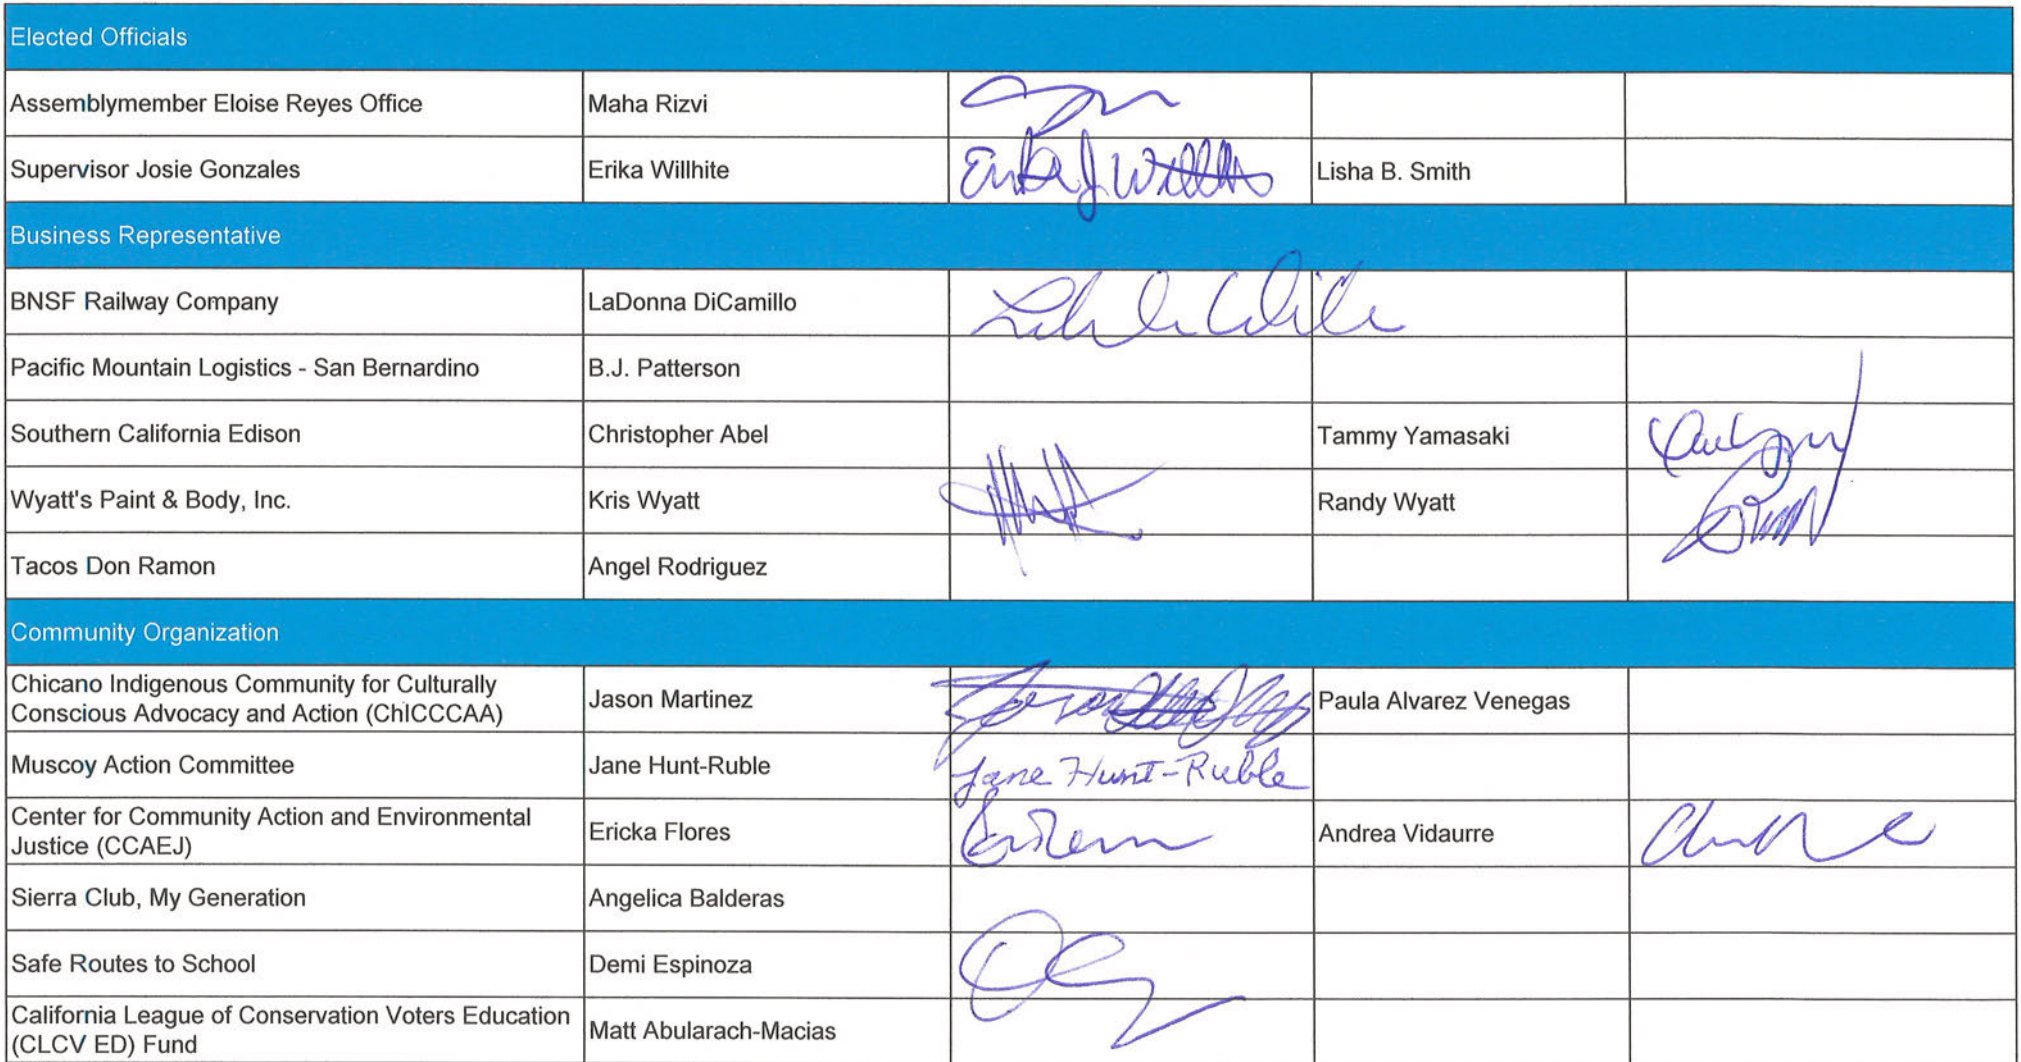 Elected Officials
Assemblymember Eloise Reyes Office Maha Rizvi
Supervisor Josie Gonzales Erika Willhite Lisha B. Smith
Business Representative
BNSF Railway Company LaDonna DiCamillo
Pacific Mountain Logistics - San Bernardino B.J. Patterson
Southern California Edison Christopher Abel Tammy Yamasaki
Wyatt's Paint & Body, Inc. Kris Wyatt Randy Wyatt
Tacos Don Ramon Angel Rodriguez
Community Organization
Chicano Indigenous Community for Culturally
Conscious Advocacy and Action (ChICCCAA) Jason Martinez Paula Alvarez Venegas
Muscoy Action Committee Jane Hunt-Ruble Jane Hunt-Ruble
Center for Community Action and Environmental
Justice (CCAEJ) Ericka Flores Andrea Vidaurre
Sierra Club, My Generation Angelica Balderas
Safe Routes to School Demi Espinoza
California League of Conservation Voters Education
(CLCV ED) Fund Matt Abularach-Macias